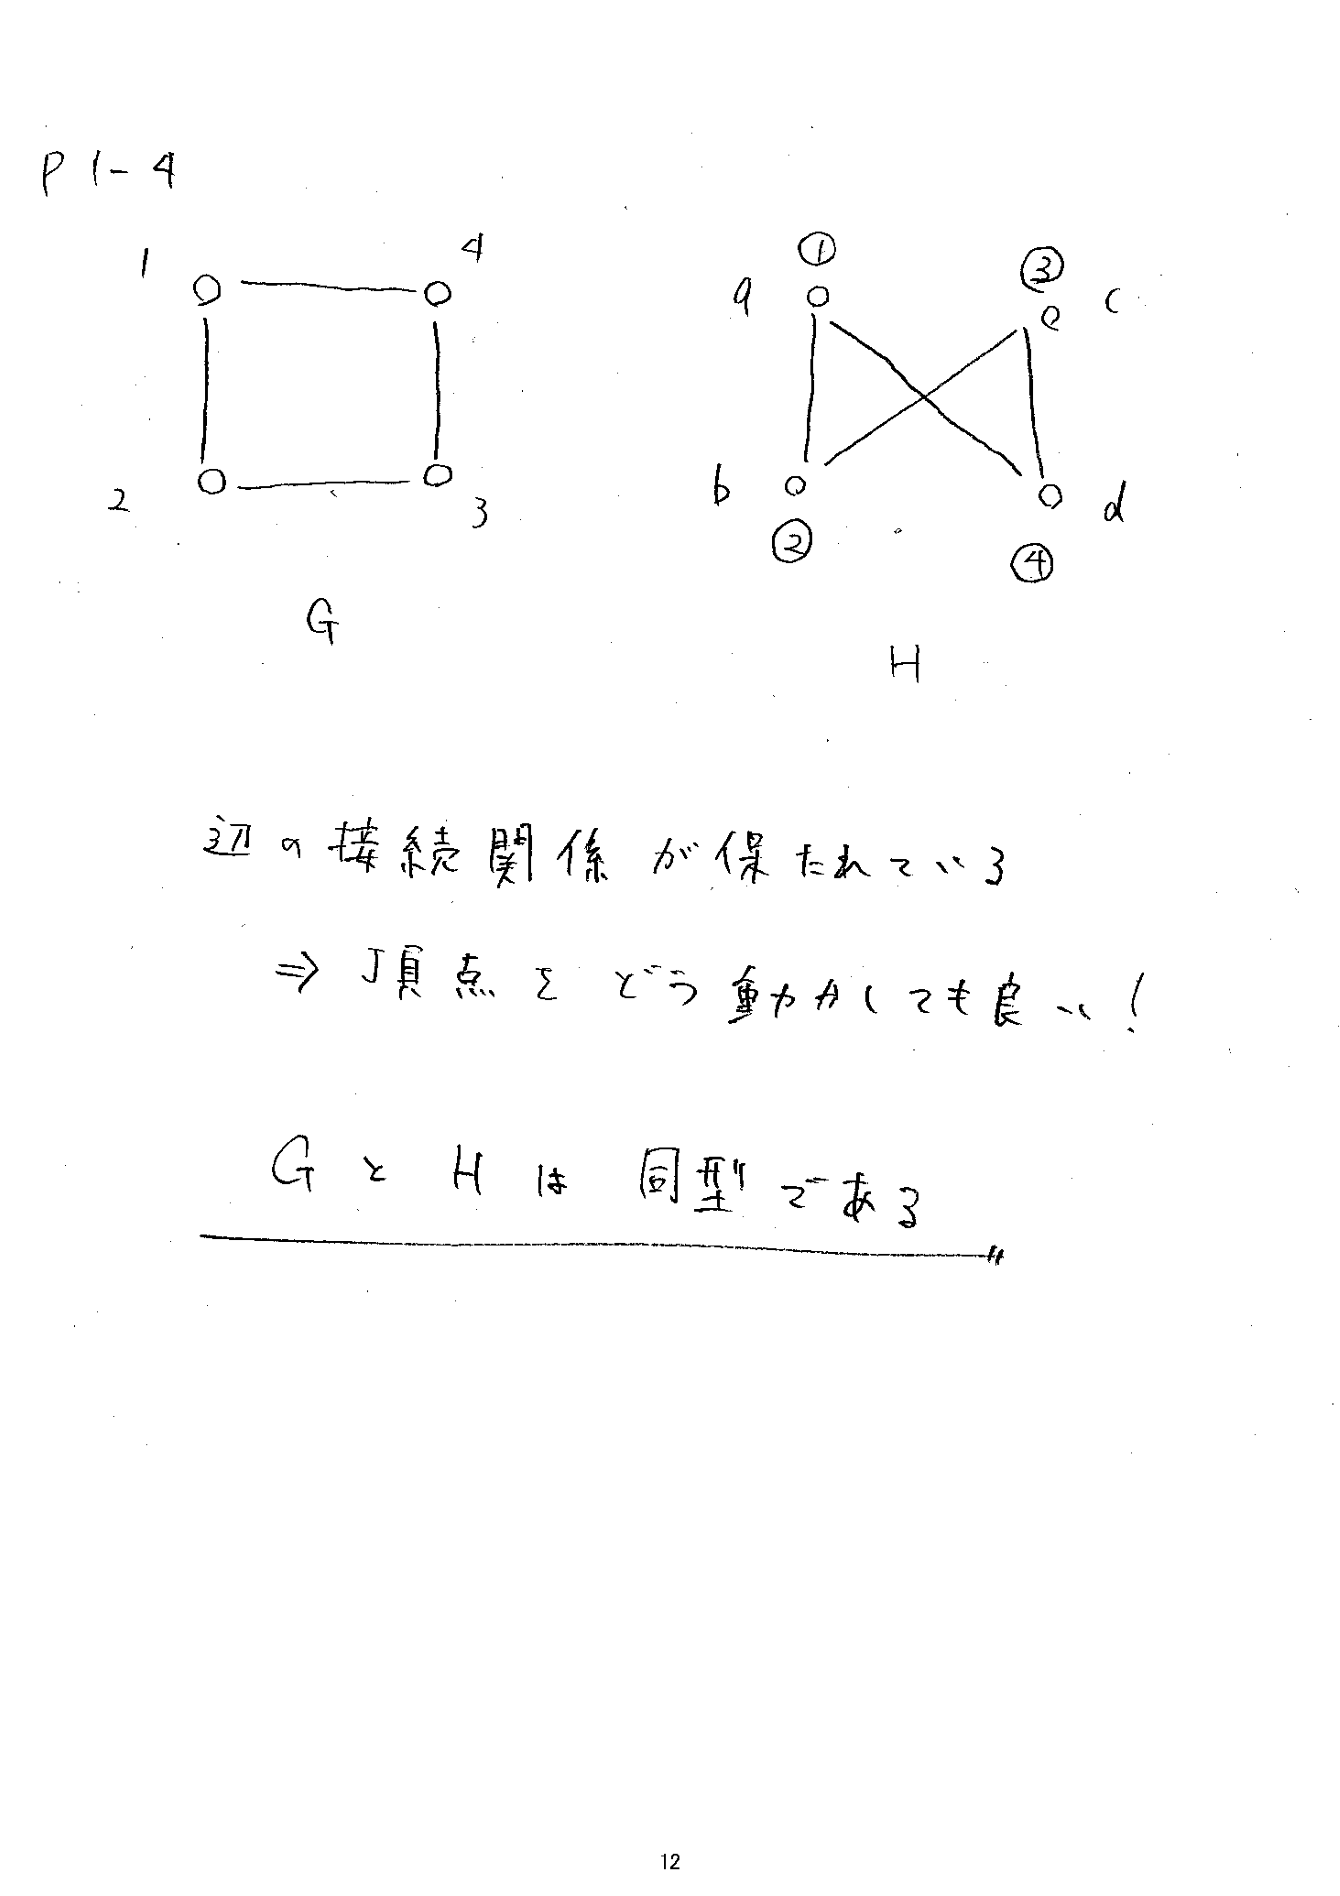 P 1-4
1 4 ① ③
a c
2 3 b d
② ④
G H
辺の接続関係が保たれている
⇒ 頂点をどう動かしても良い!
GとHは同型である
12